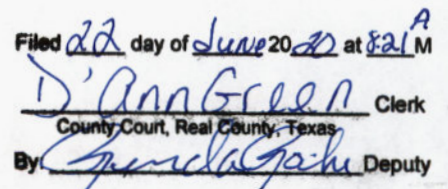 Filed 22 day of June 2020 at 8:21 A M
D'Ann Green Clerk
County Court, Real County, Texas
By: Deputy